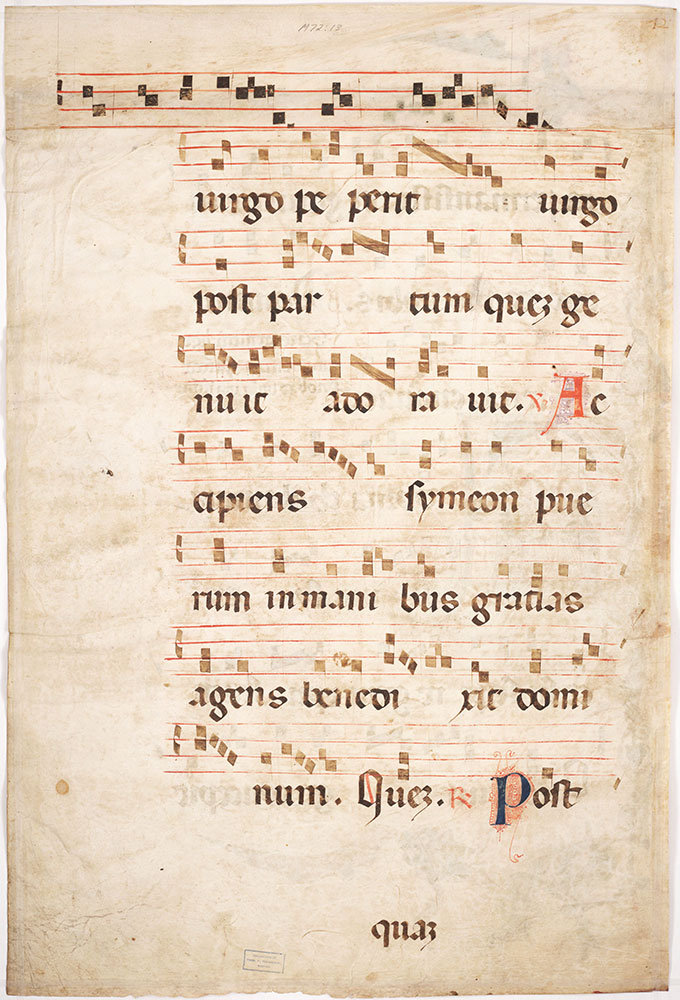 M72:13
12
uirgo pe perit uirgo
post par tum quez ge
nu it ado ra uit. V Ac
cipiens symeon pue
rum in mani bus gracias
agens benedi xit domi
num. Quez. R Post
quaz